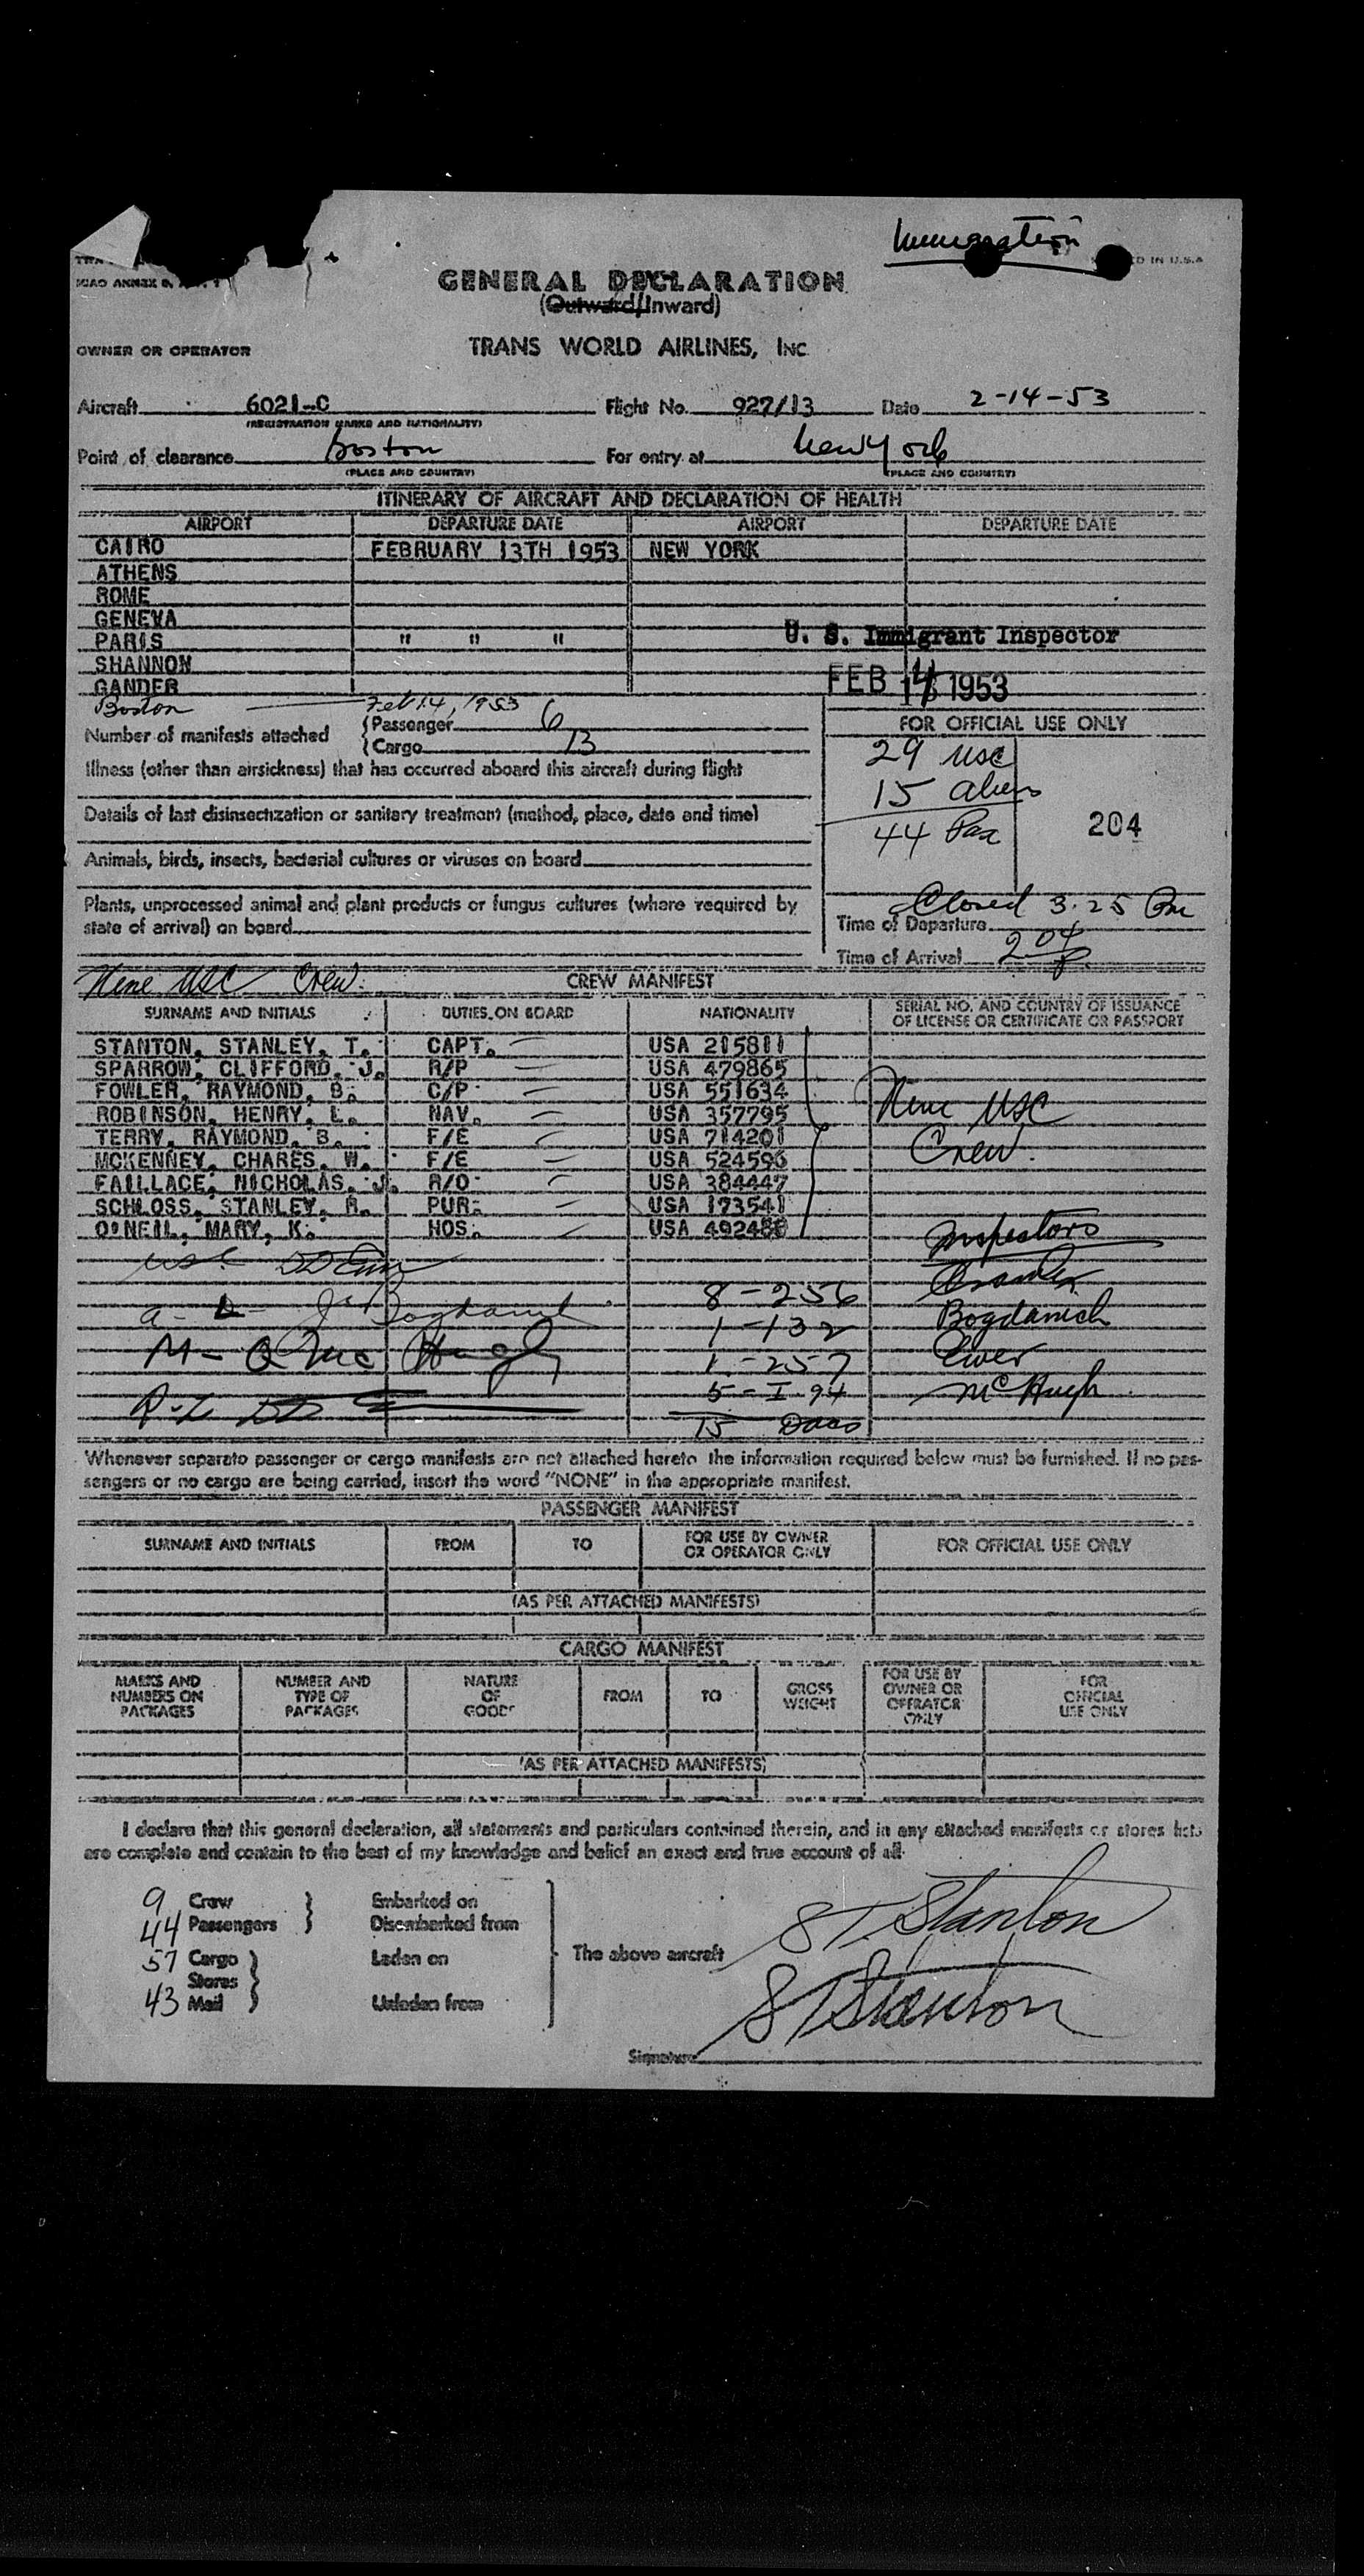 Immigration
D IN U.S.A
ICAO ANNEX 9,
GENERAL DECLARATION
(Outward/Inward)
OWNER OR OPERATOR
TRANS WORLD AIRLINES, INC.
Aircraft 6021-C Flight No. 927/13 Date 2-14-53
(REGISTRATION MARKS AND NATIONALITY)
Point of clearance Boston For entry at New York
(PLACE AND COUNTRY) (PLACE AND COUNTRY)
ITINERARY OF AIRCRAFT AND DECLARATION OF HEALTH
AIRPORT DEPARTURE DATE AIRPORT DEPARTURE DATE
CAIRO FEBRUARY 13TH 1953 NEW YORK
ATHENS
ROME
GENEVA
PARIS " " " U. S. Immigrant Inspector
SHANNON
GANDER FEB 14 1953
Boston Feb 14, 1953
Number of manifests attached { Passenger 6
{ Cargo 13
FOR OFFICIAL USE ONLY
29 USC
15 aliens
44 Pax
204
Illness (other than airsickness) that has occurred aboard this aircraft during flight
Details of last disinsectization or sanitary treatment (method, place, date and time)
Animals, birds, insects, bacterial cultures or viruses on board
Plants, unprocessed animal and plant products or fungus cultures (where required by
state of arrival) on board
Closed 3.25 Pm
Time of Departure
Time of Arrival 2 04 P.
Nine USC Crew.
CREW MANIFEST
SURNAME AND INITIALS DUTIES ON BOARD NATIONALITY SERIAL NO. AND COUNTRY OF ISSUANCE
OF LICENSE OR CERTIFICATE OR PASSPORT
STANTON, STANLEY, T. CAPT. USA 215811
SPARROW, CLIFFORD, J. R/P USA 479865
FOWLER, RAYMOND, B. C/P USA 551634
ROBINSON, HENRY, L. NAV. USA 357795
TERRY, RAYMOND, B. F/E USA 714201
MCKENNEY, CHARES, W. F/E USA 524596
FAILLACE, NICHOLAS, J. R/O USA 384447
SCHLOSS, STANLEY, R. PUR. USA 173541
O'NEIL, MARY, K. HOS. USA 492480
Nine USC
Crew.
Inspectors
8 - 256
Bogdanich
1 - 132
Ewer
1 - 257
McHugh
5 - I 94
15 Docs
Whenever separate passenger or cargo manifests are not attached hereto the information required below must be furnished. If no pas-
sengers or no cargo are being carried, insert the word "NONE" in the appropriate manifest.
PASSENGER MANIFEST
SURNAME AND INITIALS FROM TO FOR USE BY OWNER
OR OPERATOR ONLY FOR OFFICIAL USE ONLY
(AS PER ATTACHED MANIFESTS)
CARGO MANIFEST
MARKS AND
NUMBERS ON
PACKAGES
NUMBER AND
TYPE OF
PACKAGES
NATURE
OF
GOODS
FROM
TO
GROSS
WEIGHT
FOR USE BY
OWNER OR
OPERATOR
ONLY
FOR
OFFICIAL
USE ONLY
(AS PER ATTACHED MANIFESTS)
I declare that this general declaration, all statements and particulars contained therein, and in any attached manifests or stores lists
are complete and contain to the best of my knowledge and belief an exact and true account of all
9 Crew Embarked on
44 Passengers Disembarked from
57 Cargo Laden on
Stores
43 Mail Unladen from
The above aircraft
S T. Stanton
S T Stanton
Signature